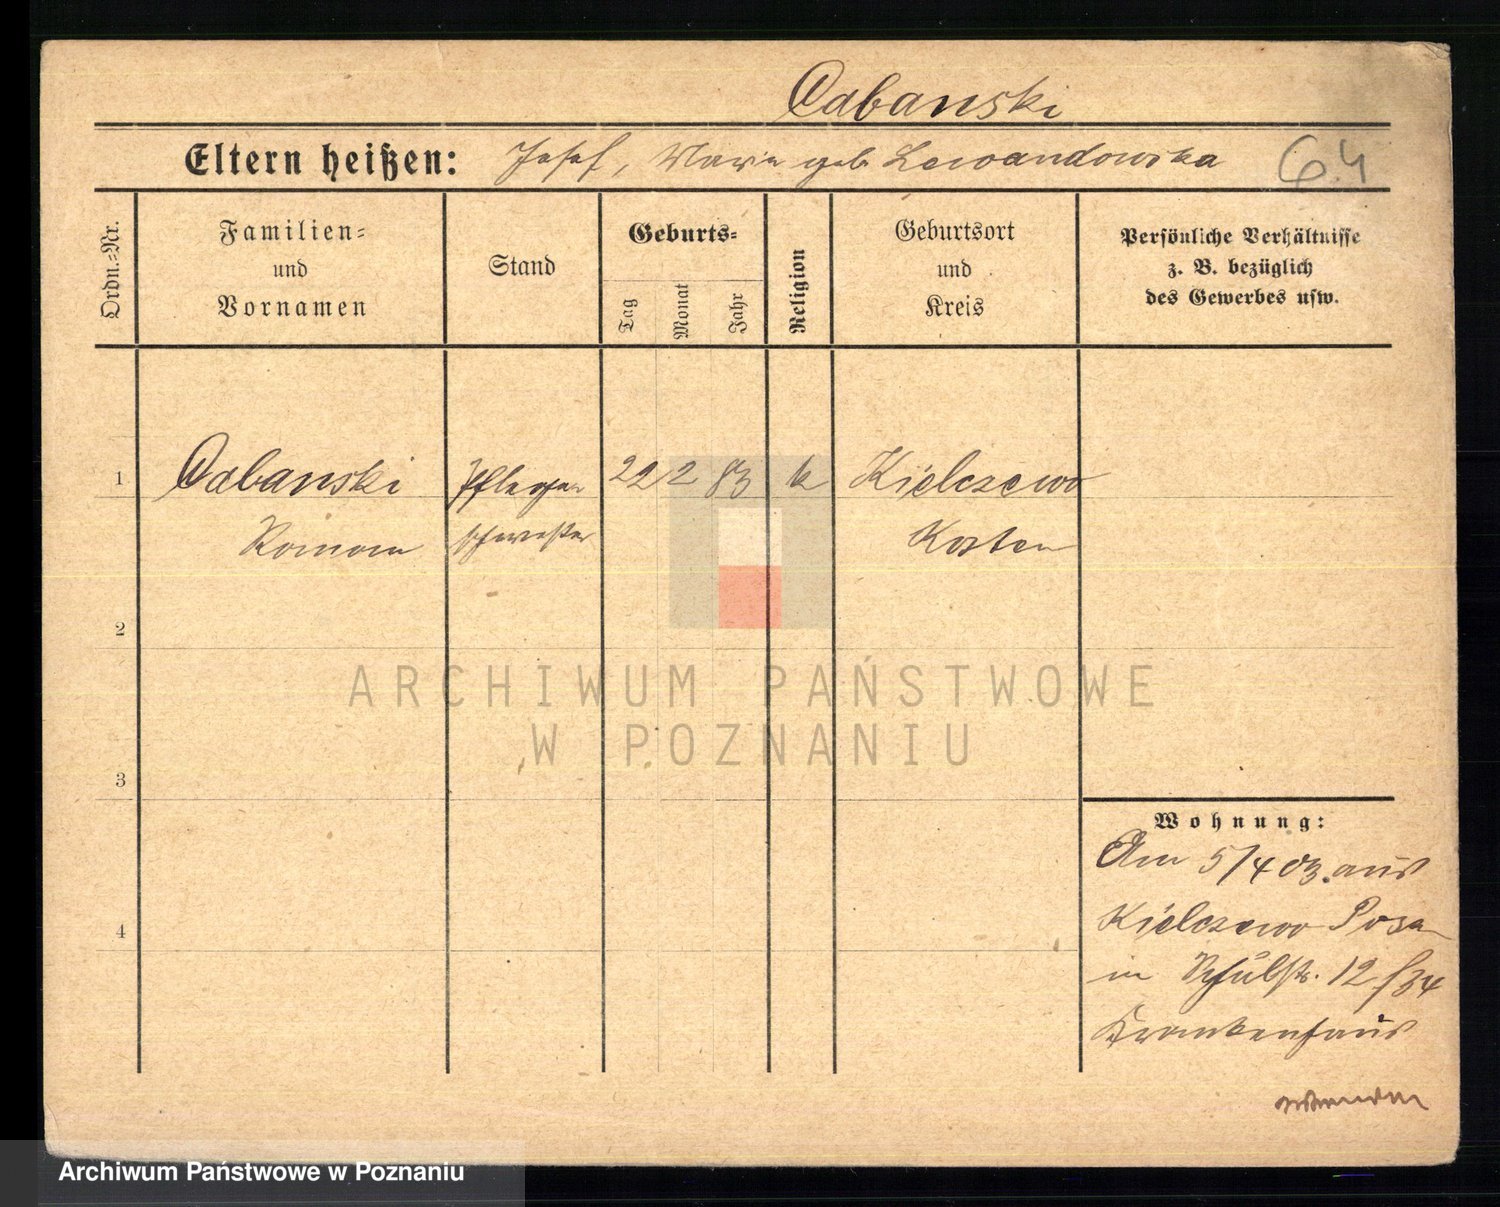 Cabanski
Eltern heißen: Josef, Maria geb Lewandowska
64
Ordn.-Nr.
Familien-
und
Vornamen
Stand
Geburts-
Tag
Monat
Jahr
Religion
Geburtsort
und
Kreis
Persönliche Verhältnisse
z. B. bezüglich
des Gewerbes usw.
1 Cabanski Pflege 22 2 83 k Kielczewo
schwester Kosten
2
3
4
Wohnung:
Am 5/4 03. aus
Kielczewo Posen
in Schulstr. 12
Krankenhaus
ARCHIWUM PAŃSTWOWE
W POZNANIU
Archiwum Państwowe w Poznaniu